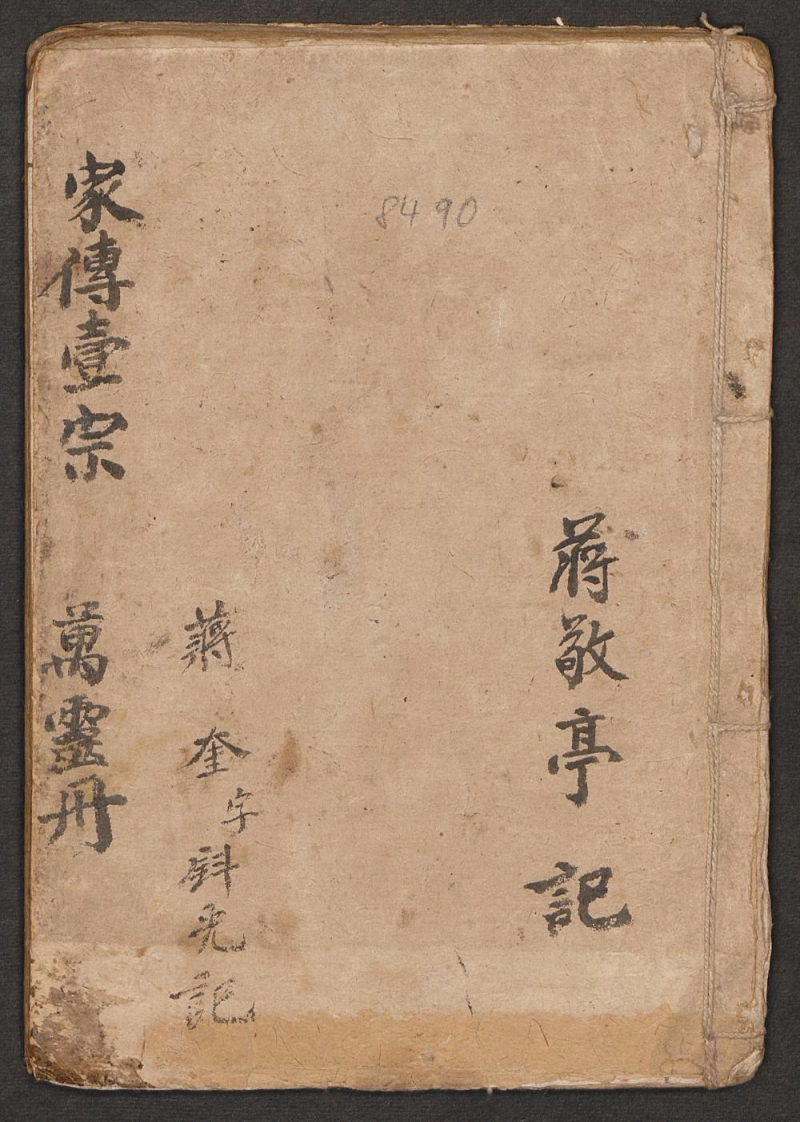 8490
蔣敬亭 記
蔣 奎 字 斟光記
家傳壹宗 萬靈冊